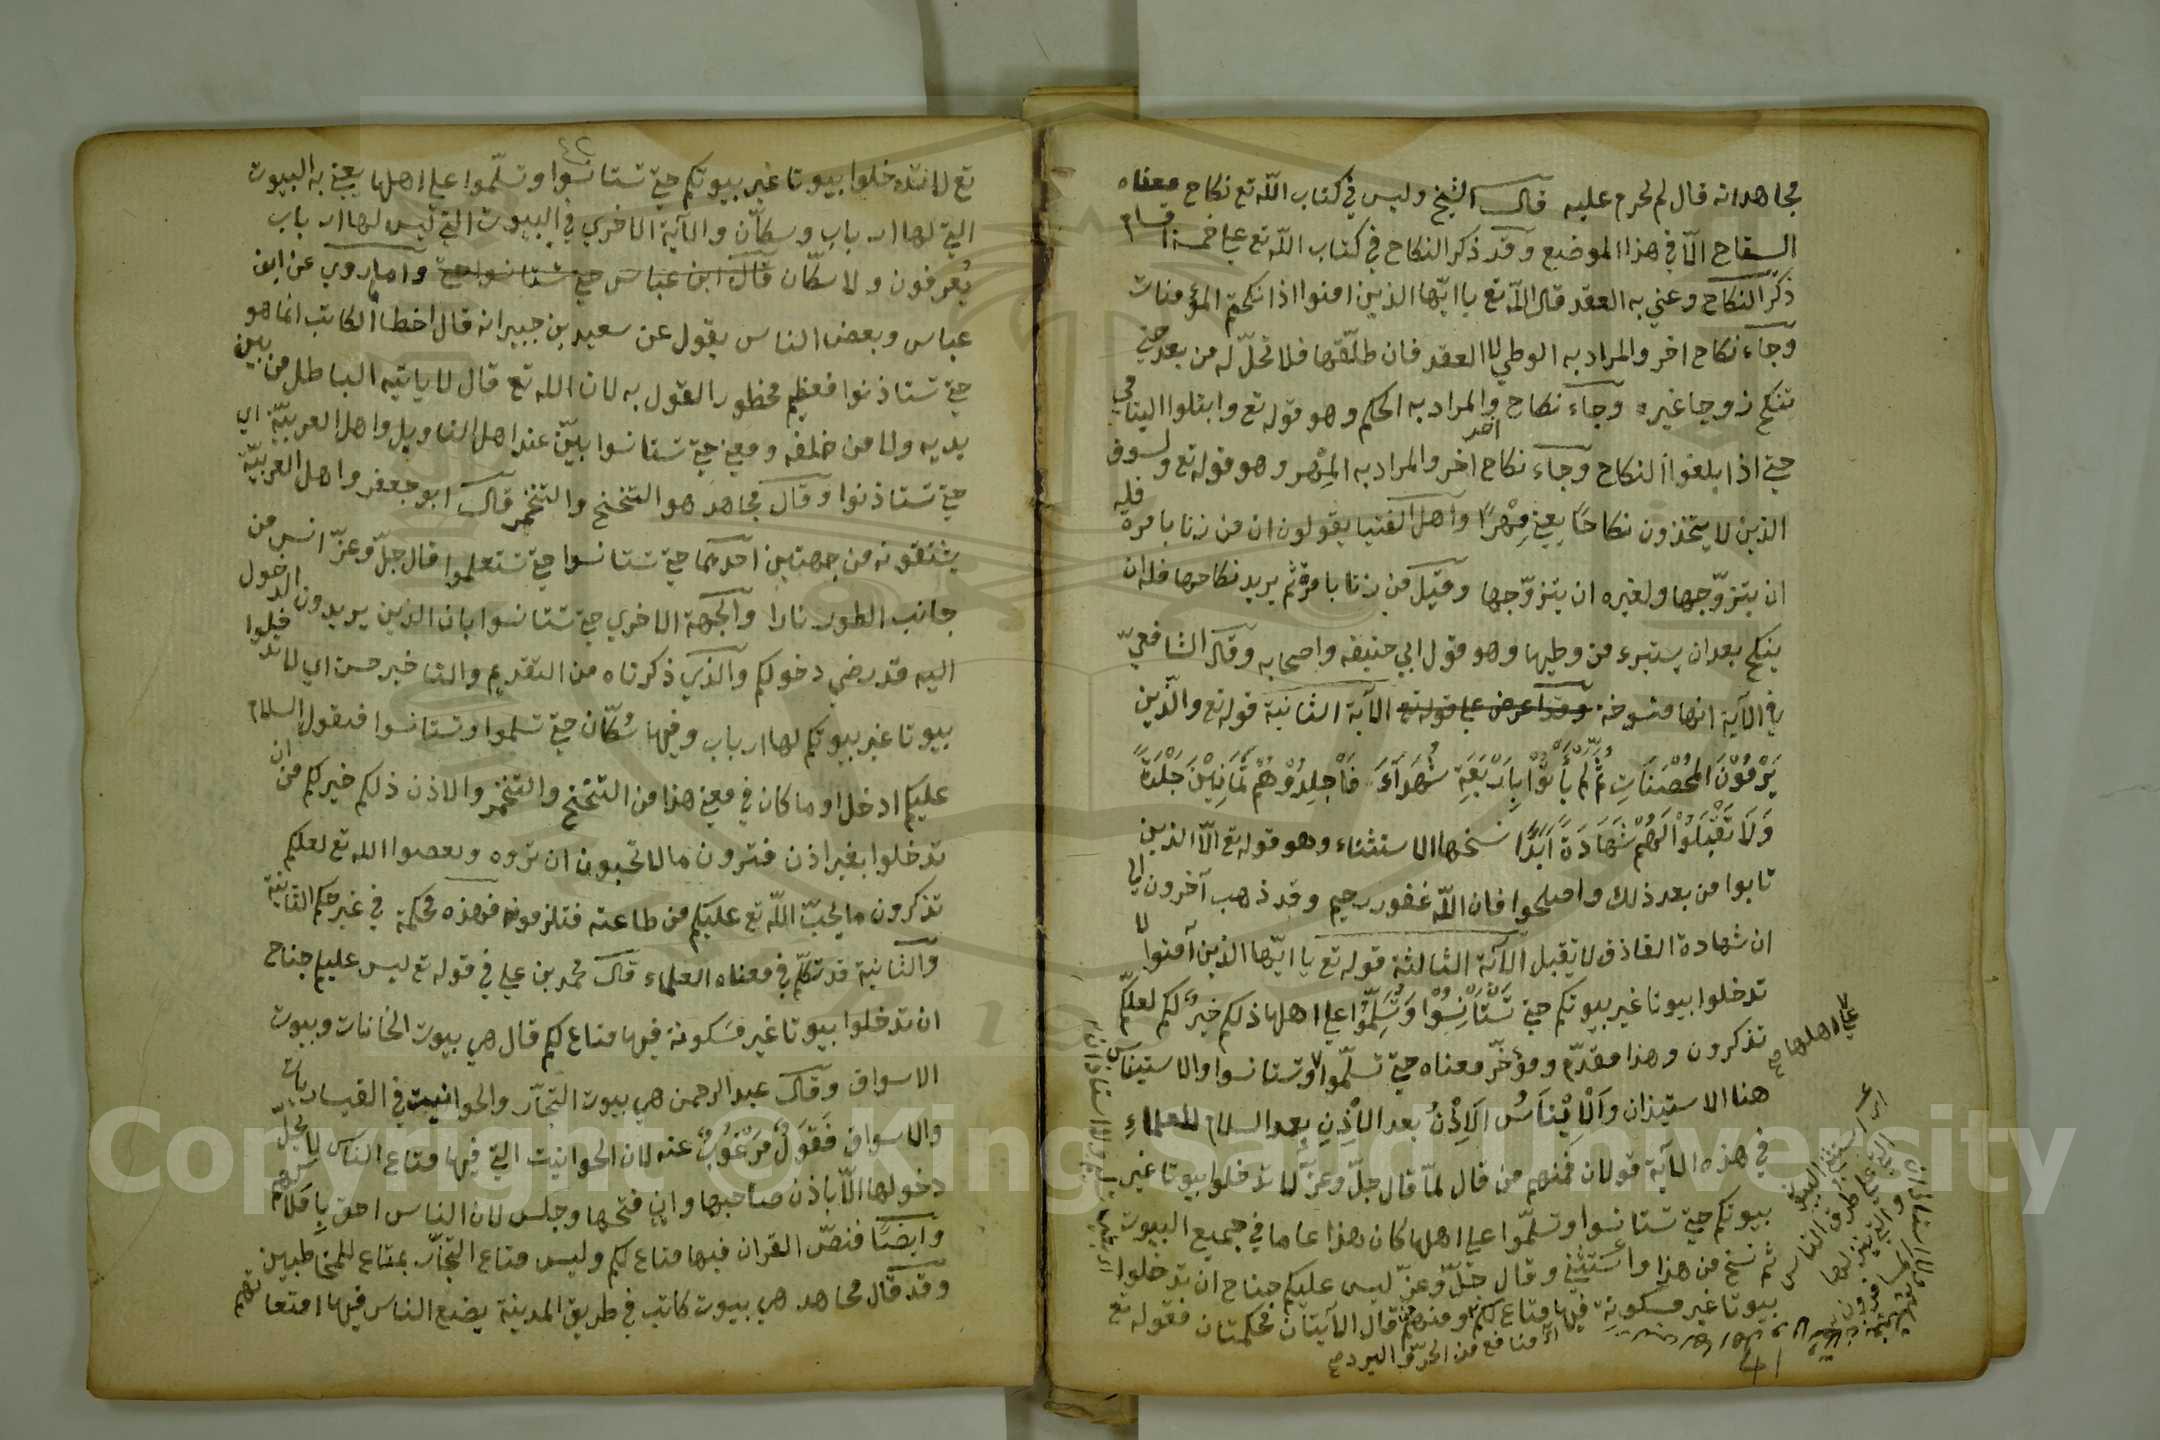 مجاهد انه قال لم يحرم عليه قال الشيخ وليس في كتاب الله تع نكاح معناه
السفاح الا في هذا الموضع وقد ذكر النكاح في كتاب الله تع على خمسة اقسام
ذكر النكاح وعني به العقد قال الله تع يا ايّها الذين امنوا اذا نكحتم المؤمنات
وجاء نكاح اخر والمراد به الوطي لا العقد فان طلّقها فلا تحلّ له من بعد حتي
تنكح زوجا غيره وجاء نكاح اخر والمراد به الحكم وهو قوله تع وابتلوا اليتامي
حتي اذا بلغوا النكاح وجاء نكاح اخر والمراد به المهر وهو قوله تع ولسوف
الذين لا يتخذون نكاحًا يعني مهرًا واهل الفتيا يقولون ان من زنا بامرة فله
ان يتزوّجها ولغيره ان يتزوّجها وقيل من زنا بامرة ثم يريد نكاحها فله ان
ينكح بعد ان يستبرء من وطيها وهو قول ابي حنيفه واصحابه وقال الشافعيّ
في الآية انها منسوخة وقد اعرض على قوله تع الآية الثانية قوله تع والّذين
يَرْمُوْنَ المُحْصَنَاتِ ثُمَّ لَمْ يَأْتُوْا بِاَرْبَعَةِ شُهَدَآءَ فَاْجلِدُوْهُمْ ثَمَانِيْنَ جَلْدَةً
وَلَا تَقْبَلُوْا لَهُمْ شَهَادَةً اَبَدًا نسخها الاستثناء وهو قوله تع الّا الذين
تابوا من بعد ذلك واصلحوا فان اللّه غفور رحيم وقد ذهب آخرون الي
ان شهادة القاذف لا تقبل الآية الثالثة قوله تع يا ايّها الذين آمنوا لا
تدخلوا بيوتا غير بيوتكم حتي تَسْتَاْنِسُوْا وَتُسَلِّمُوْا علي اهلها ذلكم خيرٌ لكم لعلّكم
تذكرون وهذا مقدّم ومؤخّر معناه حتّي تسلّموا وتستانسوا والاستيناس
هنا الاستيذان وَاَلْاِيْنَاسُ اَلِاذْنُ بعد الاْذِنِ بعد السلام للعلماءِ
في هذه الآية قولان فمنهم من قال لمّا قال جلّ وعزّ لا تدخلوا بيوتا غير
بيوتكم حتّي تستانسوا وتسلّموا علي اهلها كان هذا عاما في جميع البيوت
ثم نسخ من هذا واستثني وقال جلّ وعزّ ليس عليكم جناح ان تدخلوا
بيوتا غير مسكونة فيها متاع لكم ومنهم من قال الآيتان محكمتان فقوله تع
اي منافع من الحرّ والبرد صح
علي اهلها صح
٤٢
تع لا تدخلوا بيوتا غير بيوتكم حتّي تستانسوا وتسلّموا علي اهلها يعني به البيوت
التي لها ارباب وسكّان والآية الاخري في البيوت التي ليس لها ارباب
يُعرفون ولا سكّان قال ابن عباس حتي تستانسوا حتي واما روي عن ابن
عباس وبعض الناس يقول عن سعيد بن جبير انه قال اخطأ الكاتب انما هو
حتي تستاذنوا فعظيم محظور القول به لان الله تع قال لا ياتيه الباطل من بين
يديه ولا من خلفه ومعني حتّي تستانسوا بيّن عند اهل التاويل واهل العربيّة اي
حتي تستاذنوا وقال مجاهد هو التنحنح والتنخم قال ابو جعفر واهل العربيّة
يشتقونه من جهتين احدهما حتي تستانسوا حتي تستعلموا قال جلّ وعزّ انس من
جانب الطور نارا والجهة الاخري حتي تستانسوا بان الذين يريدون الدخول
اليه قد رضي دخولكم والذي ذكرناه من التقديم والتاخير حسن اي لا تدخلوا
بيوتا غير بيوتكم لها ارباب وفيها سُكّان حتي تسلموا وتستانسوا فيقول السلام
عليكم ادخل او ما كان في معني هذا من التنحنح والتنخم والاذن ذلكم خير لكم من ان
تدخلوا بغير اذن فترون ما لا تحبون ان تروه وتعصوا الله تع لعلكم
تذكرون ما يحبّ اللّه تع عليكم من طاعته فتلزمونه فهذه محكمة في غير حكم الثانية
والثانية قد تكلّم في معناه العلماء قال محمد بن علي في قوله تع ليس عليكم جناح
ان تدخلوا بيوتا غير مَسكونة فيها متاع لكم قال هي بيوت الخانات وبيوت
الاسواق وقال عبد الرحمن هي بيوت التجّار والحوانيت في القيساريات
والاسواق فَقَولٌ مَرْغُوبٌ عنه لان الحوانيت التي فيها متاع الناس لا يحلّ
دخولها الّا باذن صاحبها وان فتحها وجلس لان الناس احق باملاكهم
وايضًا فنصّ القران فيها متاع لكم وليس متاع التجّار بمتاع للمخاطبين
وقد قال مجاهد هي بيوت كانت في طريق المدينة يضع الناس فيها امتعاتهم
Copyright © King Saud University